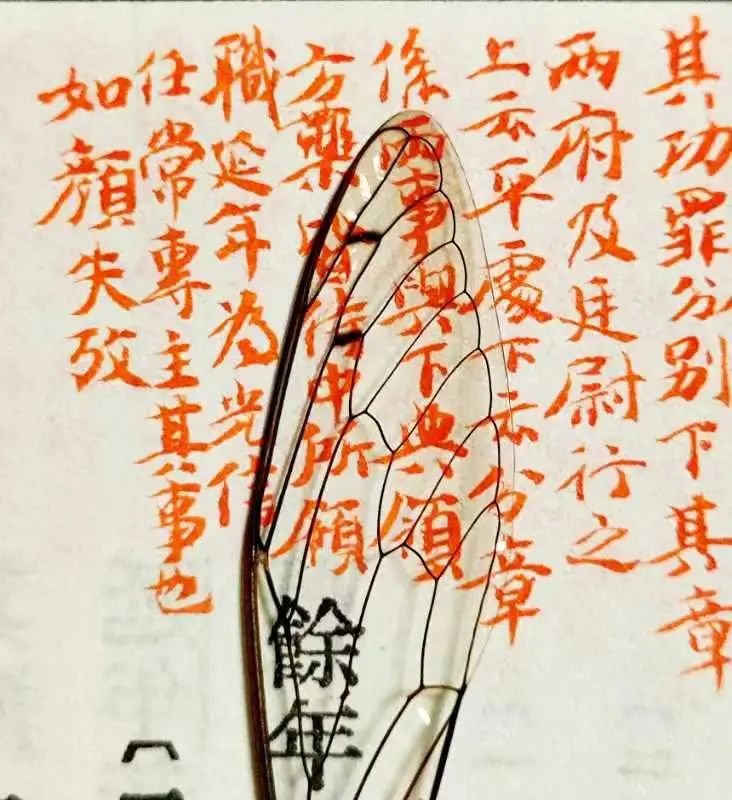 其功罪分别下其章
兩府及廷尉行之
上云平處下云分章
係兩事與下典領
方藥皆中所願
職延年為光信
任常專主其事也
如顏失攷
餘年